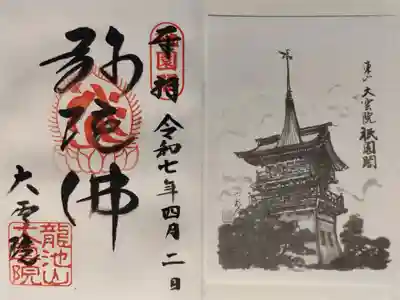 奉拝
令和七年四月二日
弥陀佛
大雲院
龍池山
大雲院
東山 大雲院 祇園閣